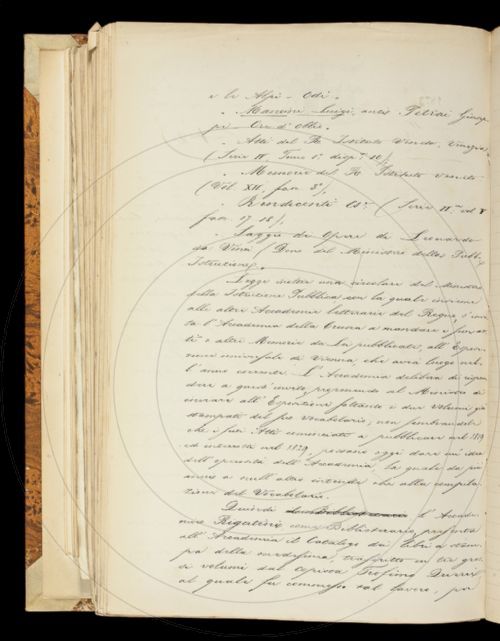 e le Alpi – Odi.
. Mancini Luigi,
pe – Ore d'Oltre.
. Atti del R. Istituto Veneto, Venezia
(Serie IV. Tomo 1° disp.
. Memorie del R. Istituto Veneto
(Vol. XVII, fasc. 3°).
. Rendiconti (Serie
fasc. 17 18).
. Saggio di Opere di Leonardo
da Vinci (Dono del Ministero della Pubb.
Istruzione).
Legge inoltre una circolare del Ministero
della Istruzione Pubblica con la quale insieme
alle altre Accademie letterarie del Regno, s'invi
ta l'Accademia della Crusca a mandare i suoi at
ti e altre Memorie da Lei pubblicate, all'Espo
zione universale di Vienna che avrà luogo nel
l'anno corrente. L'Accademia delibera di rispon
dere a quest'invito, pregando il Ministro di
inviare all'Esposizione soltanto i due volumi già
stampati del suo Vocabolario; non sembrandole
che i suoi Atti cominciati a pubblicare nel 1819
ed interrotti nel 1829, possano oggi dare un'idea
dell'operosità dell'Accademia, la quale da più
anni a null'altro intende che alla compila
zione del Vocabolario.
Quindi l'Accade
mico Bigazzi come Bibliotecario, presenta
all'Accademia il Catalogo dei Libri a stam
pa della medesima, trascritto in tre gros
si volumi dal copista Trofimo
al quale fu commesso tal lavoro, per